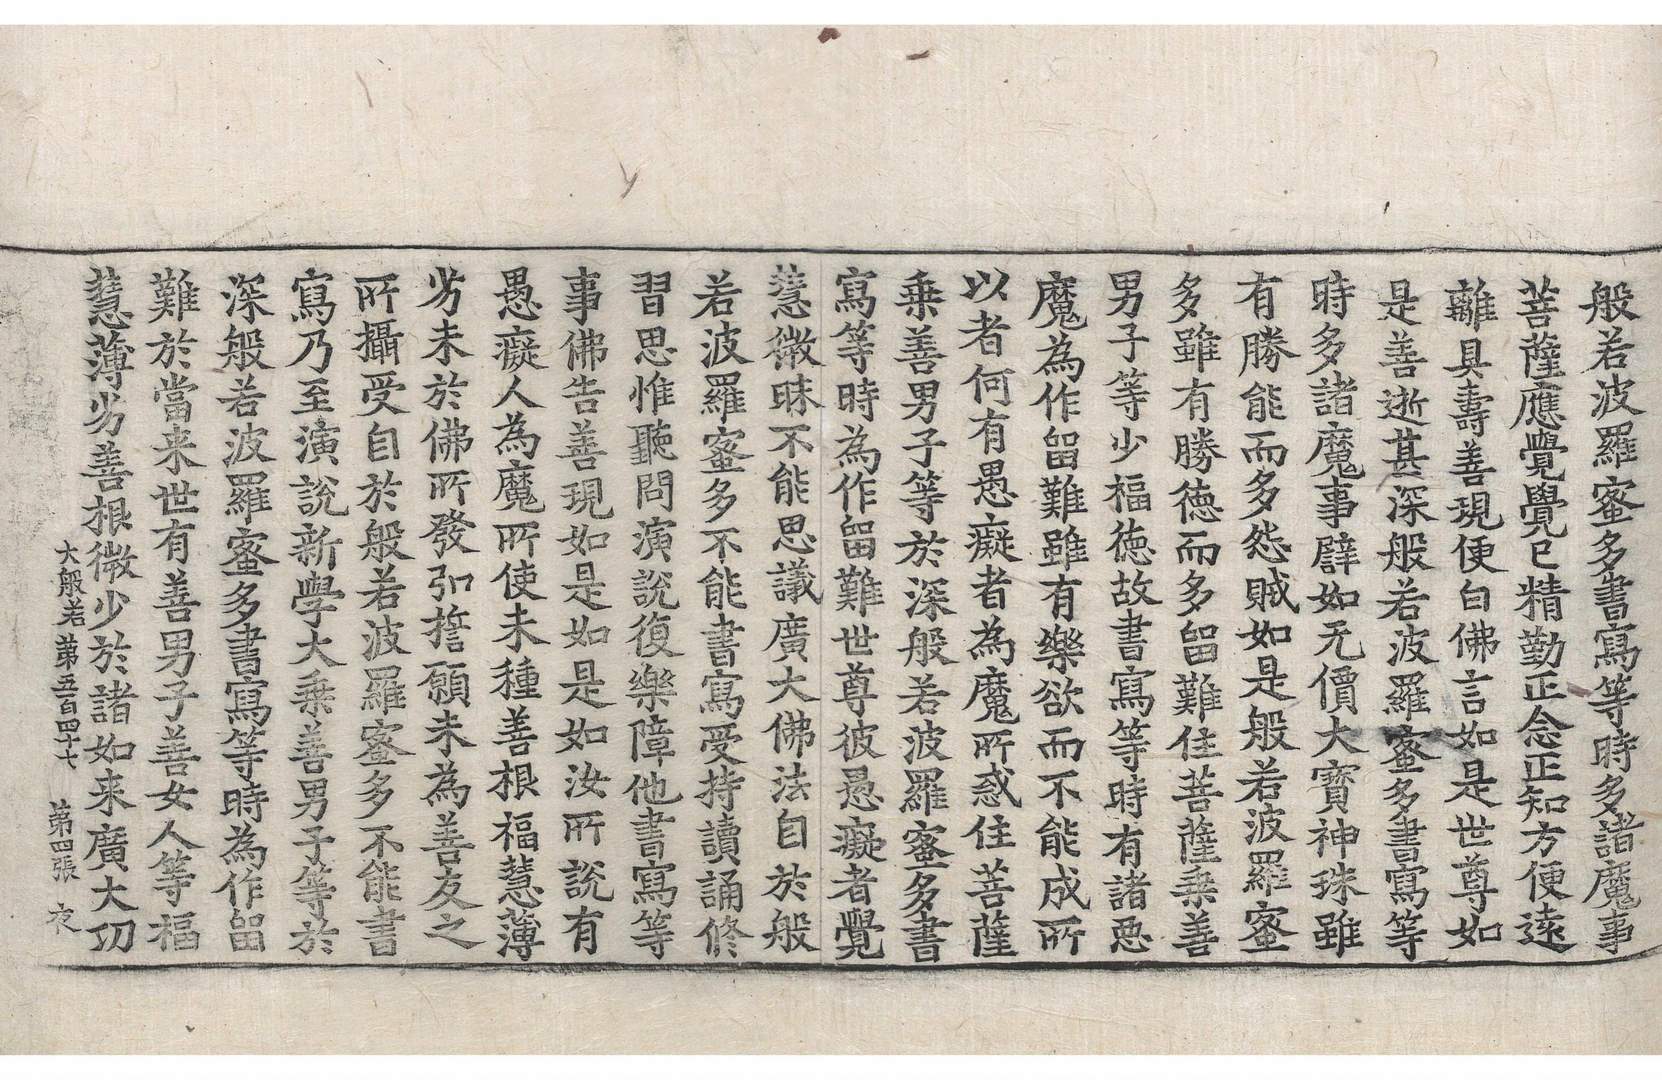 般若波羅蜜多書寫等時多諸魔事
菩薩應覺覺已精勤正念正知方便遠
離具壽善現便白佛言如是世尊如
是善逝甚深般若波羅蜜多書寫等
時多諸魔事譬如无價大寶神珠雖
有勝能而多怨賊如是般若波羅蜜
多雖有勝德而多留難住菩薩乗善
男子等少福德故書寫等時有諸惡
魔為作留難雖有樂欲而不能成所
以者何有愚癡者為魔所惑住菩薩
乗善男子等於深般若波羅蜜多書
寫等時為作留難世尊彼愚癡者覺
慧微昧不能思議廣大佛法自於般
若波羅蜜多不能書寫受持讀誦修
習思惟聽問演說復樂障他書寫等
事佛告善現如是如是如汝所說有
愚癡人為魔所使未種善根福慧薄
劣未於佛所發弘誓願未為善友之
所攝受自於般若波羅蜜多不能書
寫乃至演說新學大乗善男子等於
深般若波羅蜜多書寫等時為作留
難於當来世有善男子善女人等福
慧薄劣善根微少於諸如来廣大功
大般若第五百四十七 第四張 夜